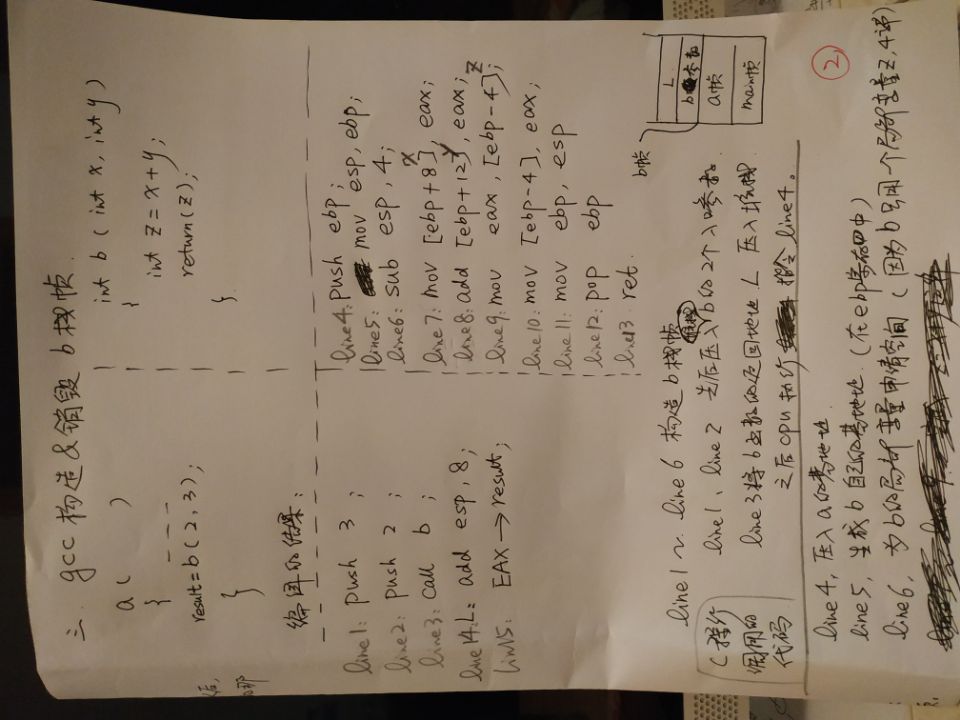 三. gcc 构造&销毁 b栈帧.
a( )
{
_ _ _
result=b(2,3);
}
int b(int x, int y)
{
int z=x+y;
return(z);
}.
编译的结果:
line1: push 3 ;
line2: push 2 ;
line3: call b ;
line14.L: add esp, 8;
line15: EAX → result;
line4: push ebp;
line5: mov esp, ebp;
line6: sub esp, 4;
x
line7: mov [ebp+8], eax;
y
line8: add [ebp+12], eax;
z
line9: mov eax, [ebp-4];
line10: mov [ebp-4], eax;
line11: mov ebp, esp
line12: pop ebp
line13 ret.
b帧
L
b参数
a帧
main帧
line1 ~ line6 构造b栈帧
C操作
调用的
代码
line1、line2 先后压入堆栈b的2个入口参数.
line3将b函数的返回地址 L 压入堆栈
之后cpu执行 指令line4。
line4, 压入a的基地址
line5, 生成b自己的基地址.(在ebp寄存器中)
line6, 为b的局部变量申请空间(因为b只用一个局部变量z,4字节)
2
后,
那